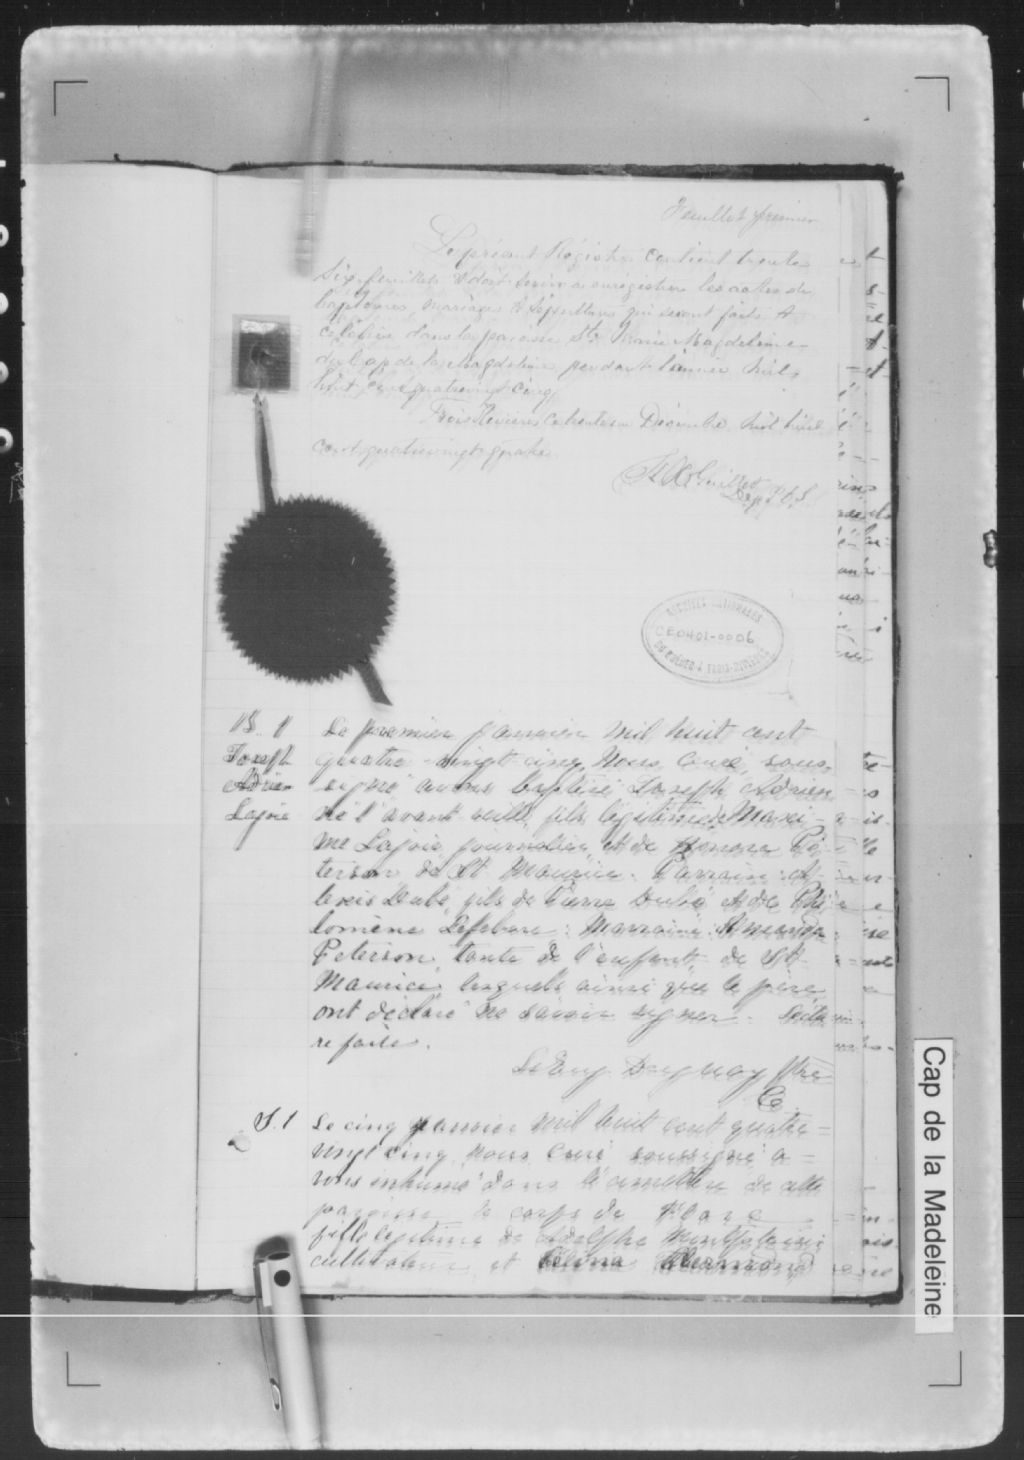 Feuillet premier
Le présent Régistre contient trente
six feuillets & doit servir a enrégistrer les actes de
baptêmes, mariages & sépultures qui seront faits &
célébrés dans la paroisse Ste Marie Magdeleine
du Cap de la Magdeleine pendant l'année mil
huit cent quatrevingt cinq
Trois Rivières ce trente un Décembre mil huit
cent quatrevingt quatre.
Guillet
Dep. P C S
ARCHIVES NATIONALES
CE0401-0006
DU QUÉBEC À TROIS-RIVIÈRES
B. 1
Joseph
Adrien
Lajoie
Le premier janvier mil huit cent
quatre-vingt cinq, Nous, Curé, sous-
signé avons baptisé Joseph Adrien
né l'avant veille, fils légitime de Maxi-
me Lajoie journalier, et de Honore Pé-
terson de St Maurice. Parrain: A-
lexis Dubé, fils de Pierre Dubé et de Phi
lomène Lefebvre; Marraine: Amanda
Peterson, tante de l'enfant, de St
Maurice, lesquels ainsi que le père
ont déclaré ne savoir signer. Lectu
re faite.
Duguay Ptre
C.
S. 1
Le cinq janvier mil huit cent quatre-
vingt cinq, nous Curé soussigné a-
vons inhumé dans le cimetière de cette
paroisse le corps de
fille légitime de Adolphe Montplaisir
cultivateur et Célina
Cap de la Madeleine